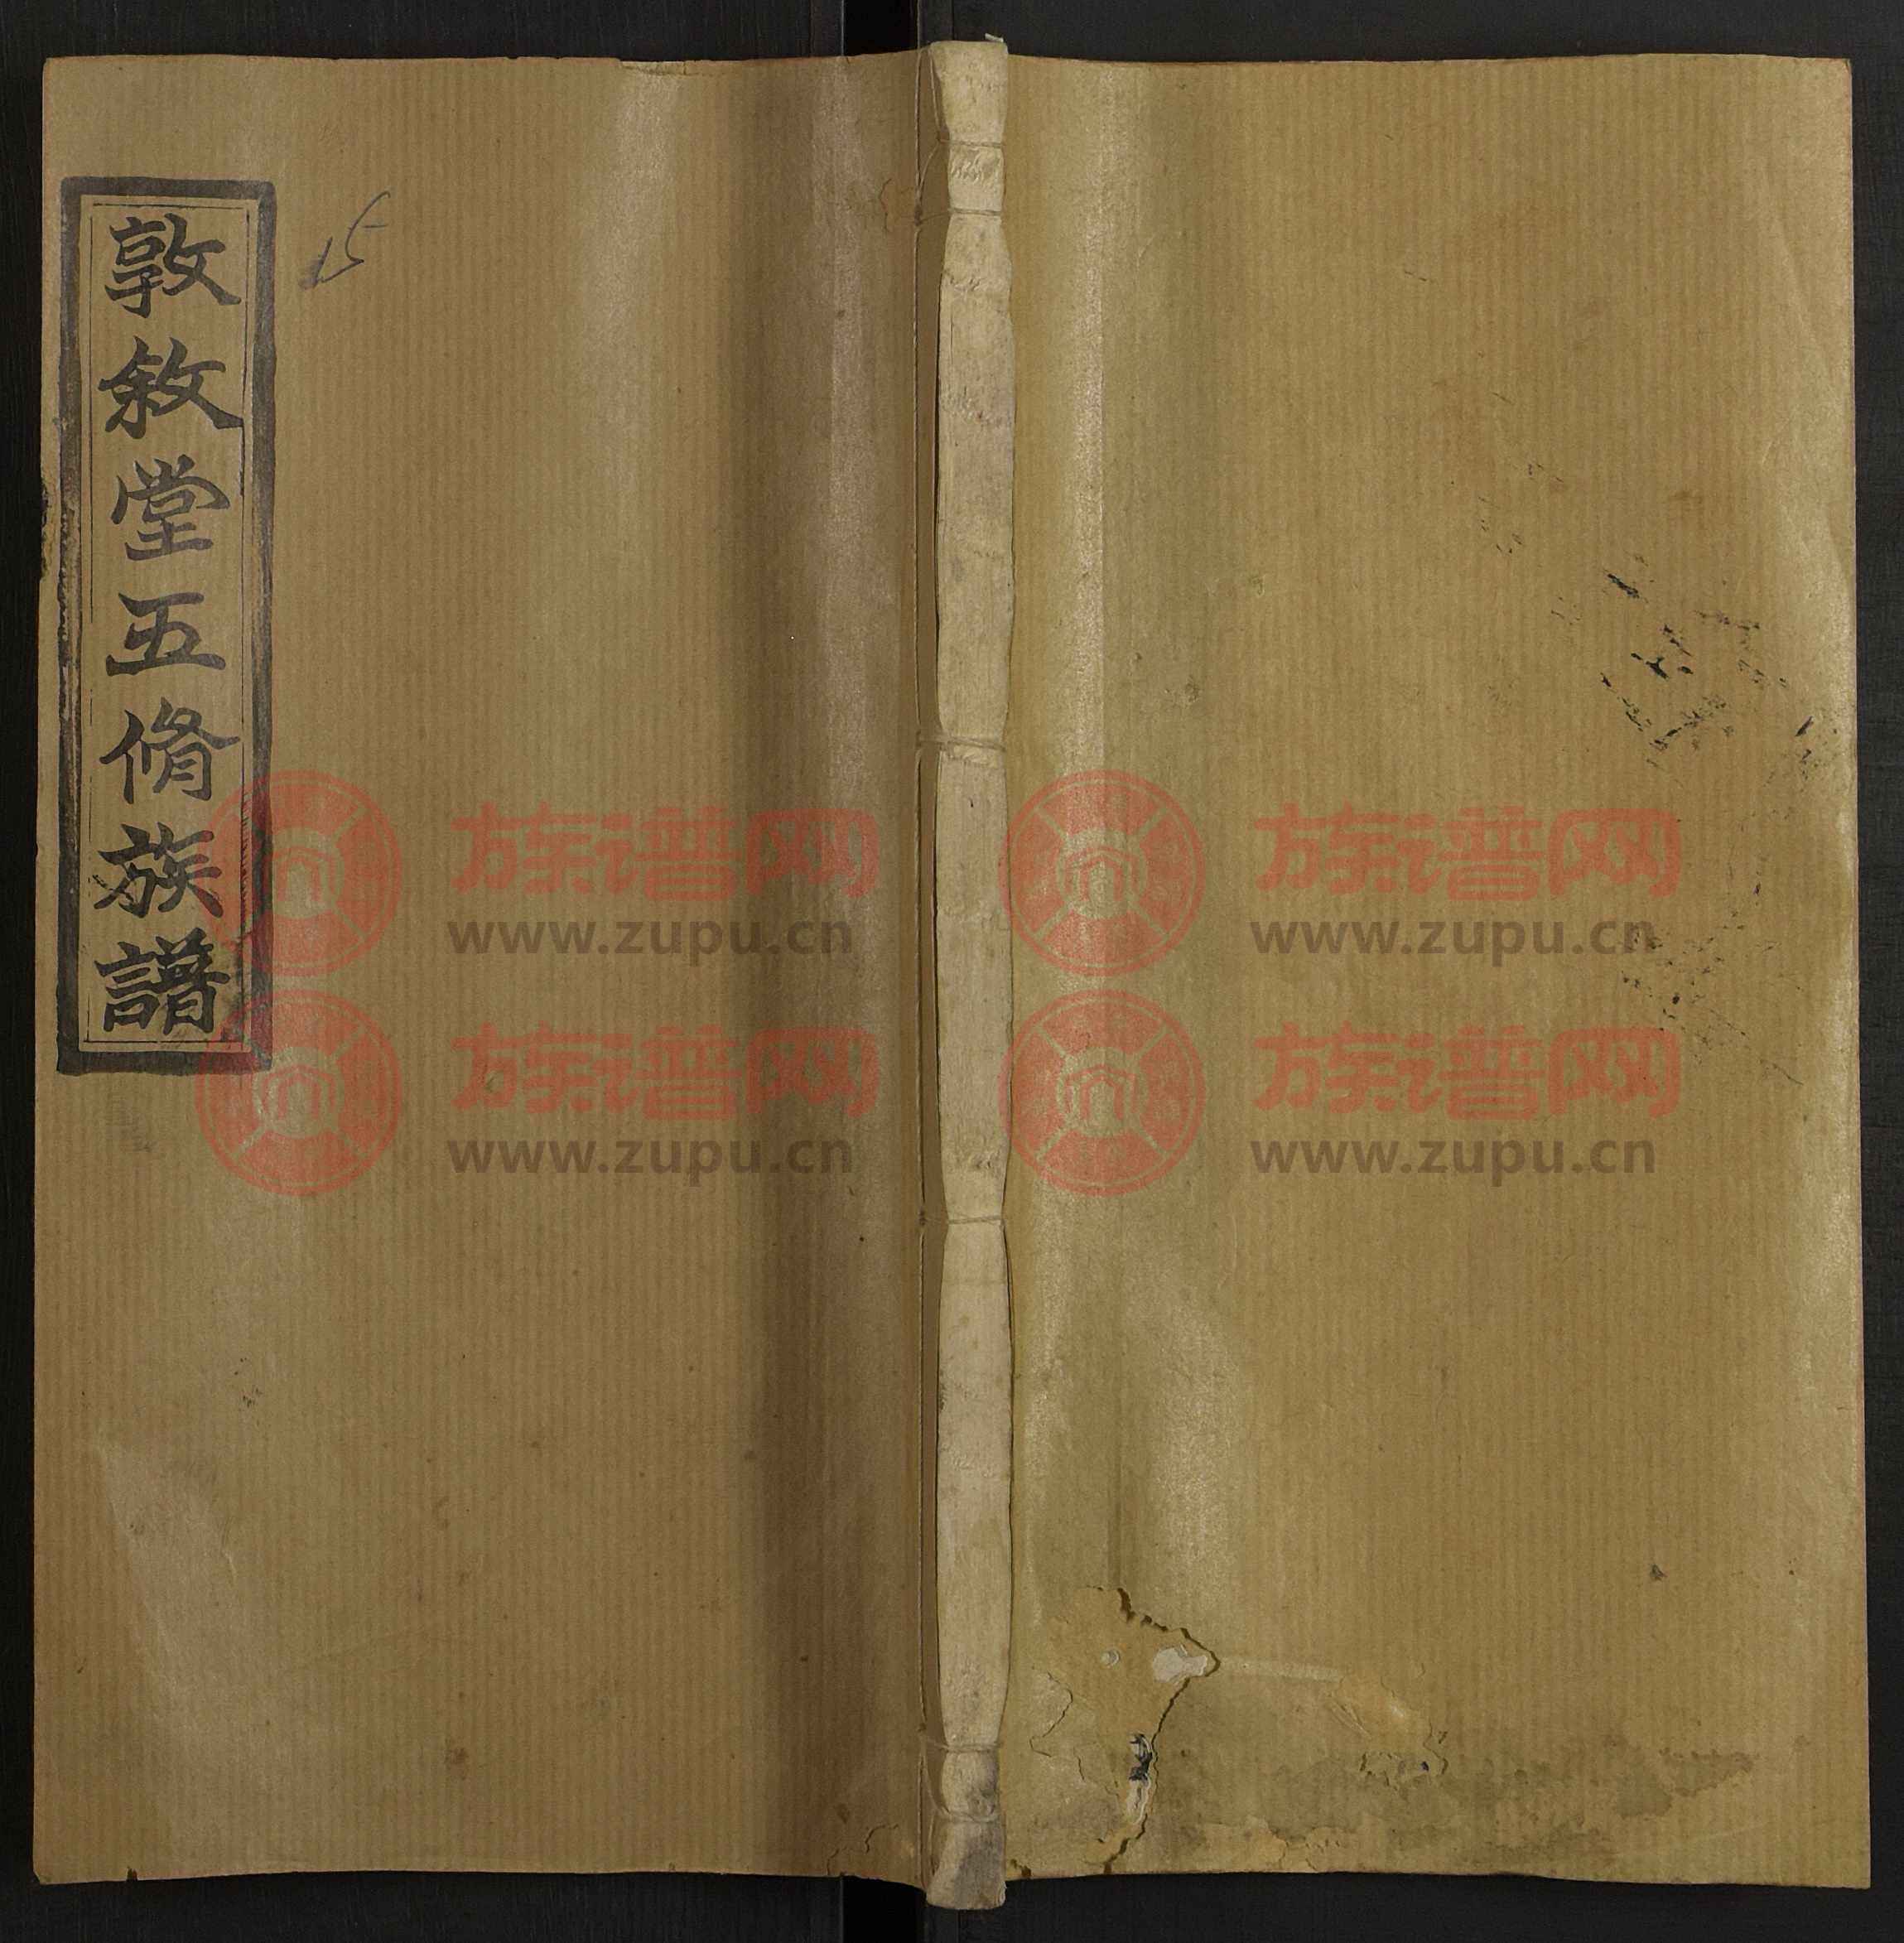 敦敘堂五脩族譜
15
族谱网
www.zupu.cn
族谱网
www.zupu.cn
族谱网
www.zupu.cn
族谱网
www.zupu.cn